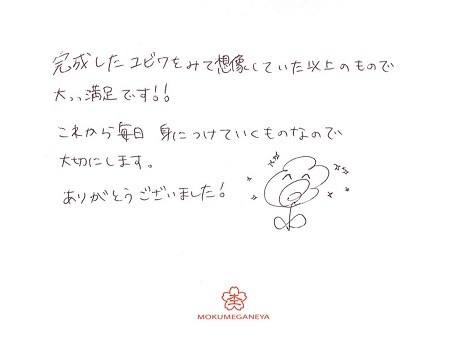 完成したユビワをみて想像していた以上のもので
大、、満足です!!
これから毎日 身につけていくものなので
大切にします。
ありがとうございました!
MOKUMEGANEYA